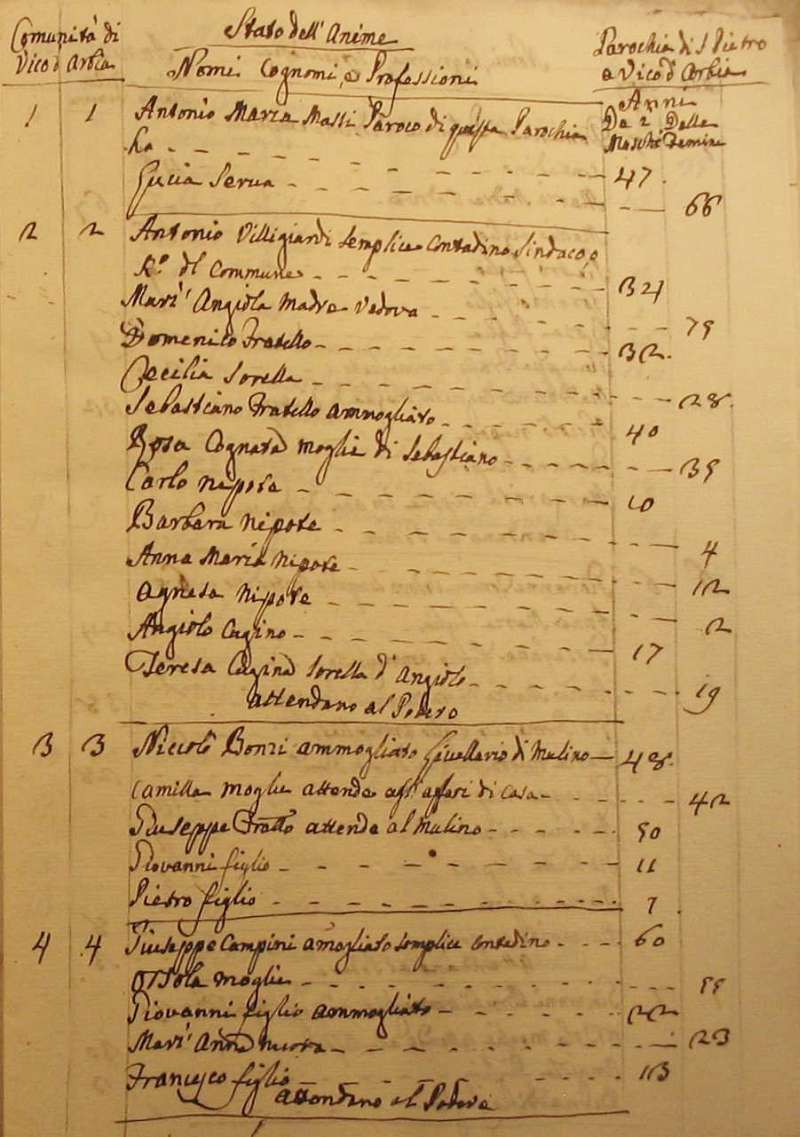 Comunità di
Vico d'Arbia
Stato dell'Anime
Nomi Cognomi, e Professioni
Parochia di S. Pietro
a Vico d'Arbia
Anni
De i Delle
Maschi Femine
1 1 Antonio Maria Massi Paroco di questa Parochia
47
Lucia Serva 66
2 2 Antonio Villigiardi semplice contadino Sindaco, e
dl Commune 34
Mari' Angiola madre vedova 75
Domenico Fratello 32
Cecilia Sorella 28
Sebastiano Fratello ammogliato 40
Rosa Cognata moglie di Sebastiano 35
Carlo nipote 10
Barbara nipote 4
Anna Maria nipote 12
Agnesa nipote 2
Angiolo Cugino 17
Teresa Cugina Sorella d'Angiolo 19
attendano al Podere
3 3 Niccolò Bonzi ammogliato Livellario di Mulino 48
Camilla moglie attende agl'affari di casa 42
Giuseppe Fratto attende al Mulino 50
Giovanni figlio 11
Pietro figlio 7
4 4 Giuseppe Campini amogliato semplice contadino 60
Orsola moglie 55
Giovanni figlio ammogliato 22
Mari' Anna nuora 23
Francesco figlio 13
attendano al Podere